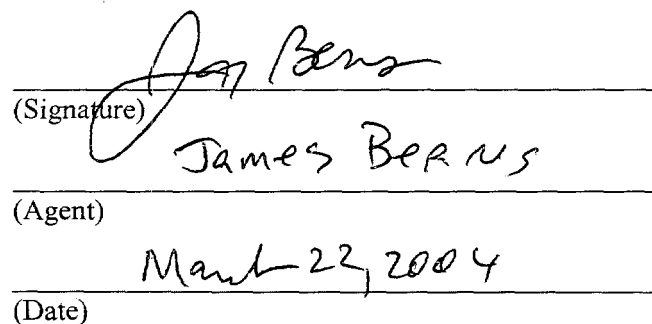 Jay Berns
(Signature)
James Berns
(Agent)
March 22, 2004
(Date)